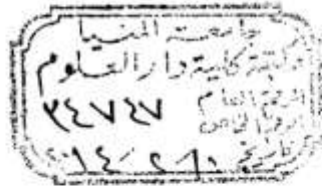 جامعة المنيا
مكتبة كلية دار العلوم
الرقم العام ٣٤٧٤٧
الرقم الخاص
تاريخ